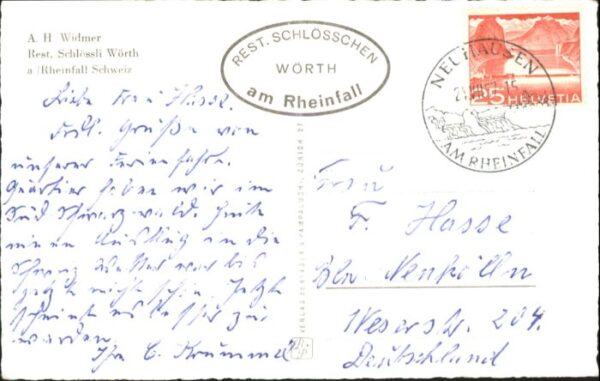 A. H. Widmer
Rest. Schlössli Wörth
a/Rheinfall Schweiz
REST. SCHLÖSSCHEN
WÖRTH
am Rheinfall
25 HELVETIA
NEUHAUSEN
AM RHEINFALL
Liebe Frau Hasse.
Frdl. Grüße von
unserer Ferienfahrt.
Quartier haben wir im
Süd Schwarzwald. Heute
einen Ausflug in die
Schweiz. Wetter war bis
jetzt nicht schön. Jetzt
scheint es besser zu
werden.
Ihr E. Krummel
Frau
F. Hasse
Bln. Neukölln
Weserstr. 204.
Deutschland